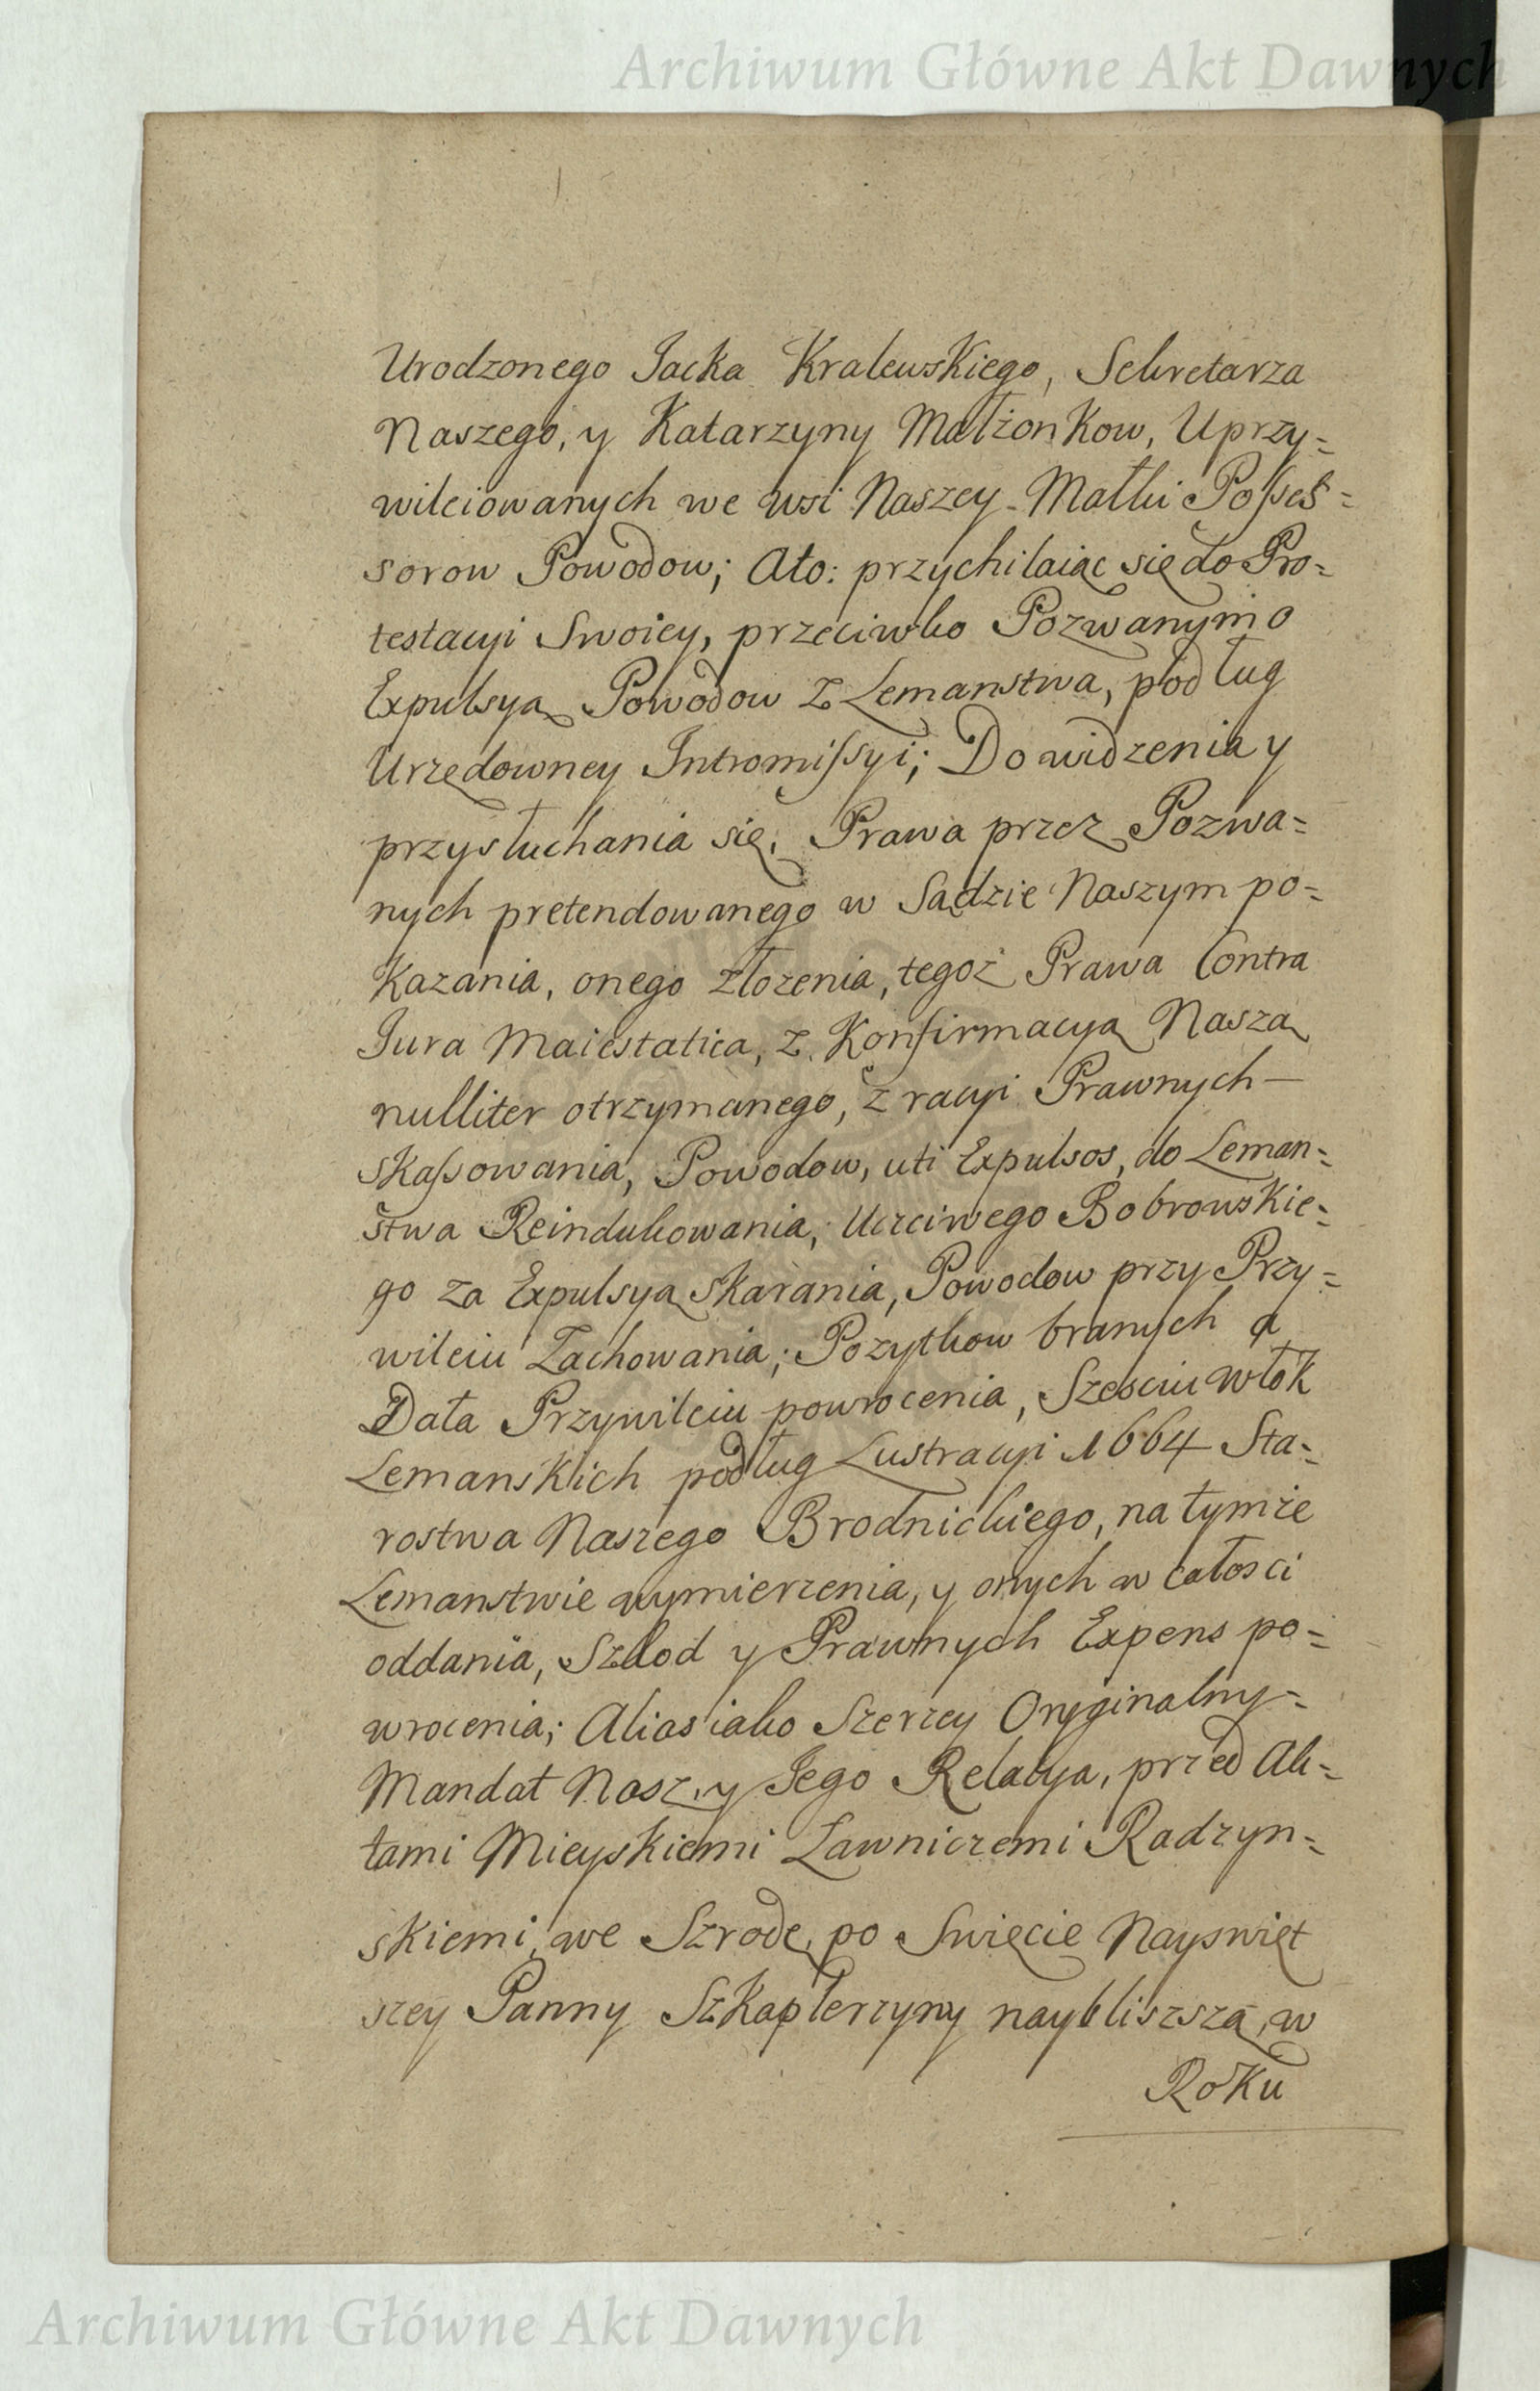 Archiwum Główne Akt Dawnych
Urodzonego Jacka Kralewskiego, Sekretarza
Naszego, y Katarzyny Małżonkow, Uprzy=
wileiowanych we wsi Naszey Małki Posses=
sorow Powodow; Ato: przychilaiąc się do Pro=
testacyi Swoiey, przeciwko Pozwanym o
Expulsyą Powodow z Lemanstwa, podług
Urzędowney Intromissyi; Do widzenia y
przysłuchania się, Prawa przez Pozwa=
nych pretendowanego w Sądzie Naszym po=
kazania, onego złozenia, tegoż Prawa Contra
Jura Maiestatica, z Konfirmacyą Naszą
nulliter otrzymanego, z racyi Prawnych —
skassowania, Powodow, uti Expulsos, do Leman=
stwa Reindukowania, Uczciwego Bobrowskie=
go za Expulsyą skarania, Powodow przy Przy=
wileiu Zachowania; Pozytkow branych a
Data Przywileiu powrocenia, Szesciu włok
Lemanskich podług Lustracyi 1664 Sta=
rostwa Naszego Brodnickiego, na tymże
Lemanstwie wymierzenia, y onych w całosci
oddania, Szkod y Prawnych Expens po=
wrocenia; Alias iako Szerzey Oryginalny=
Mandat Nasz, y Jego Relacya, przed Ak=
tami Mieyskiemi Ławniczemi Radzyn=
skiemi, we Szrodę po Swięcie Nayswięt
szey Panny Szkaplerzyny naybliszszą, w
Roku
Archiwum Główne Akt Dawnych